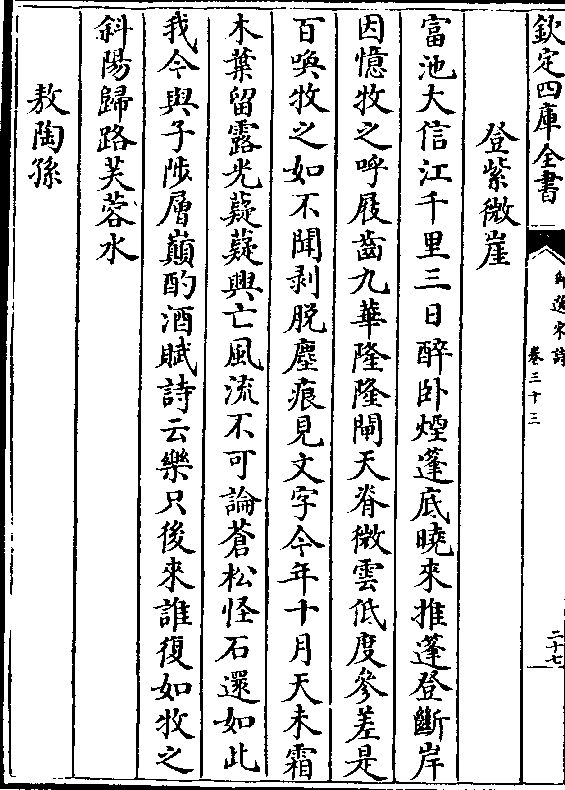 欽定四庫全書
御選宋詩
卷三十三
二十七
登紫微崖
富池大信江千里三日醉卧煙蓬底曉來推蓬登斷岸
因憶牧之呼屐齒九華隆隆閘天脊微雲低度參差是
百喚牧之如不聞剥脱塵痕見文字今年十月天未霜
木葉留露光薿薿興亡風流不可論蒼松怪石還如此
我今與子陟層巔酌酒賦詩云樂只後來誰復如牧之
斜陽歸路芙蓉水
敖陶孫